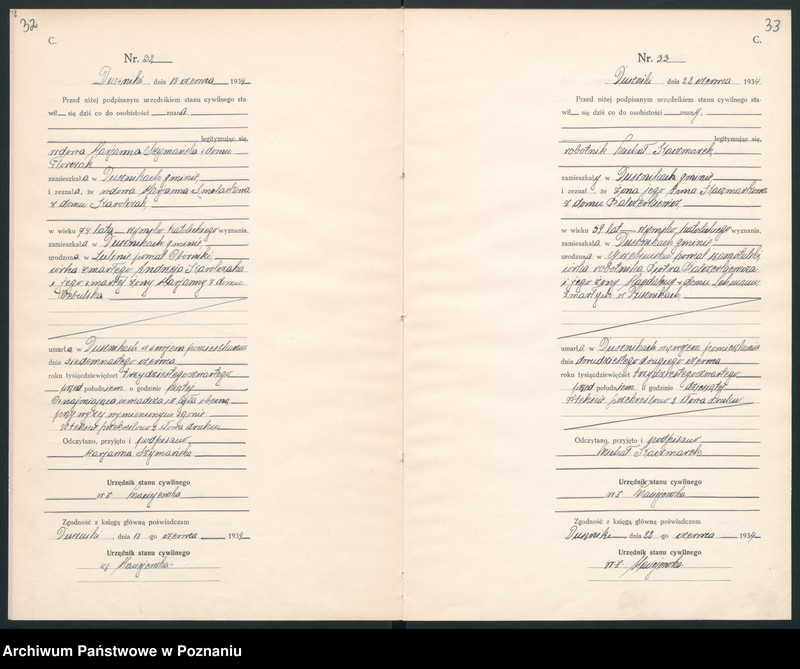 32
C.
Nr. 32
Duszniki, dnia 18 czerwca 1934
Przed niżej podpisanym urzędnikiem stanu cywilnego sta-
wiła się dziś co do osobistości znana
legitymując się,
wdowa Marjanna Szymańska z domu
zamieszkała w Dusznikach gminie
i zeznała, że wdowa Marjanna
z domu
w wieku 74 lata rzymsko katolickiego wyznania,
zamieszkała w Dusznikach gminie
urodzona w powiat Obornicki
córka zmarłego Andrzeja
i jego zmarłej żony Marjanny z domu
umarła w Dusznikach w swojem pomieszkaniu
dnia siedemnastego czerwca
roku tysiącdziewięćset trzydziestegoczwartego
przed południem o godzinie piątej
Oznajmiająca była obecną
przy wyżej wymienionym zgonie
W tekście przekreślono z słowa druku
Odczytano, przyjęto i podpisano
Marjanna Szymańska
Urzędnik stanu cywilnego
wz. Maciejewska
Zgodność z księgą główną poświadczam
Duszniki, dnia 18 go czerwca 1934
Urzędnik stanu cywilnego
wz. Maciejewska
33
C.
Nr. 33
Duszniki, dnia 22 czerwca 1934
Przed niżej podpisanym urzędnikiem stanu cywilnego sta-
wił się dziś co do osobistości znany,
legitymując się,
robotnik Michał Kaczmarek
zamieszkały w Dusznikach gminie
i zeznał, że żona jego Anna Kaczmarkowa
z domu
w wieku 39 lat rzymsko katolickiego wyznania,
zamieszkała w Dusznikach gminie
urodzona w powiat szamotulski
córka robotnika Piotra
i jego żony Magdaleny z domu
zmarłych w Dusznikach
umarła w Dusznikach w swojem pomieszkaniu
dnia dwudziestego drugiego czerwca
roku tysiącdziewięćset trzydziestegoczwartego
przed południem o godzinie dziesiątej
W tekście przekreślono z słowa druku
Odczytano, przyjęto i podpisano
Michał Kaczmarek
Urzędnik stanu cywilnego
wz. Maciejewska
Zgodność z księgą główną poświadczam
Duszniki dnia 22 go czerwca 1934
Urzędnik stanu cywilnego
wz. Maciejewska
Archiwum Państwowe w Poznaniu